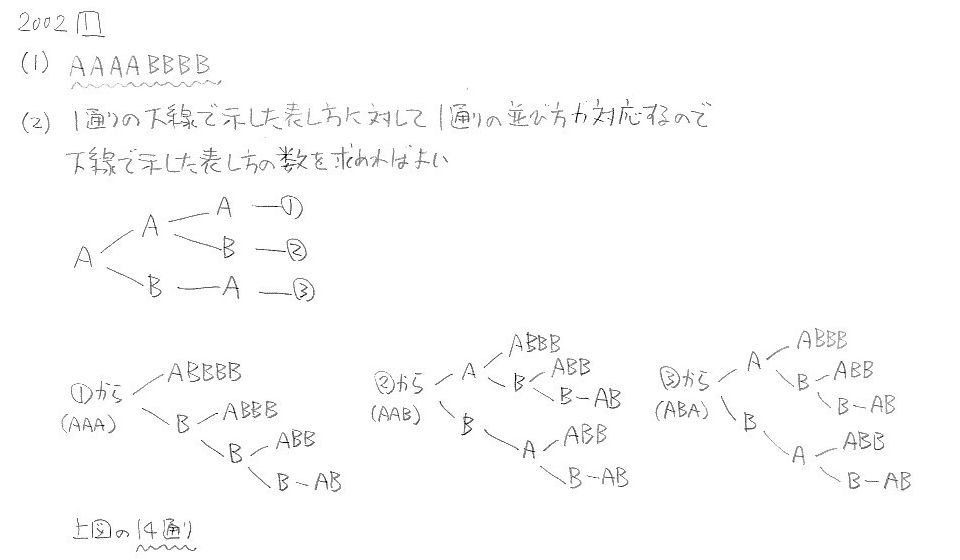 2002 1
(1) AAAABBBB
(2) 1通りの下線で示した表し方に対して1通りの並び方が対応するので
下線で示した表し方の数を求めればよい
A
A
A ①
B ②
B
A ③
①から
(AAA)
ABBBB
B
ABBB
B
ABB
B-AB
②から
(AAB)
A
ABBB
B
ABB
B-AB
B
A
ABB
B-AB
③から
(ABA)
A
ABBB
B
ABB
B-AB
B
A
ABB
B-AB
上図の14通り